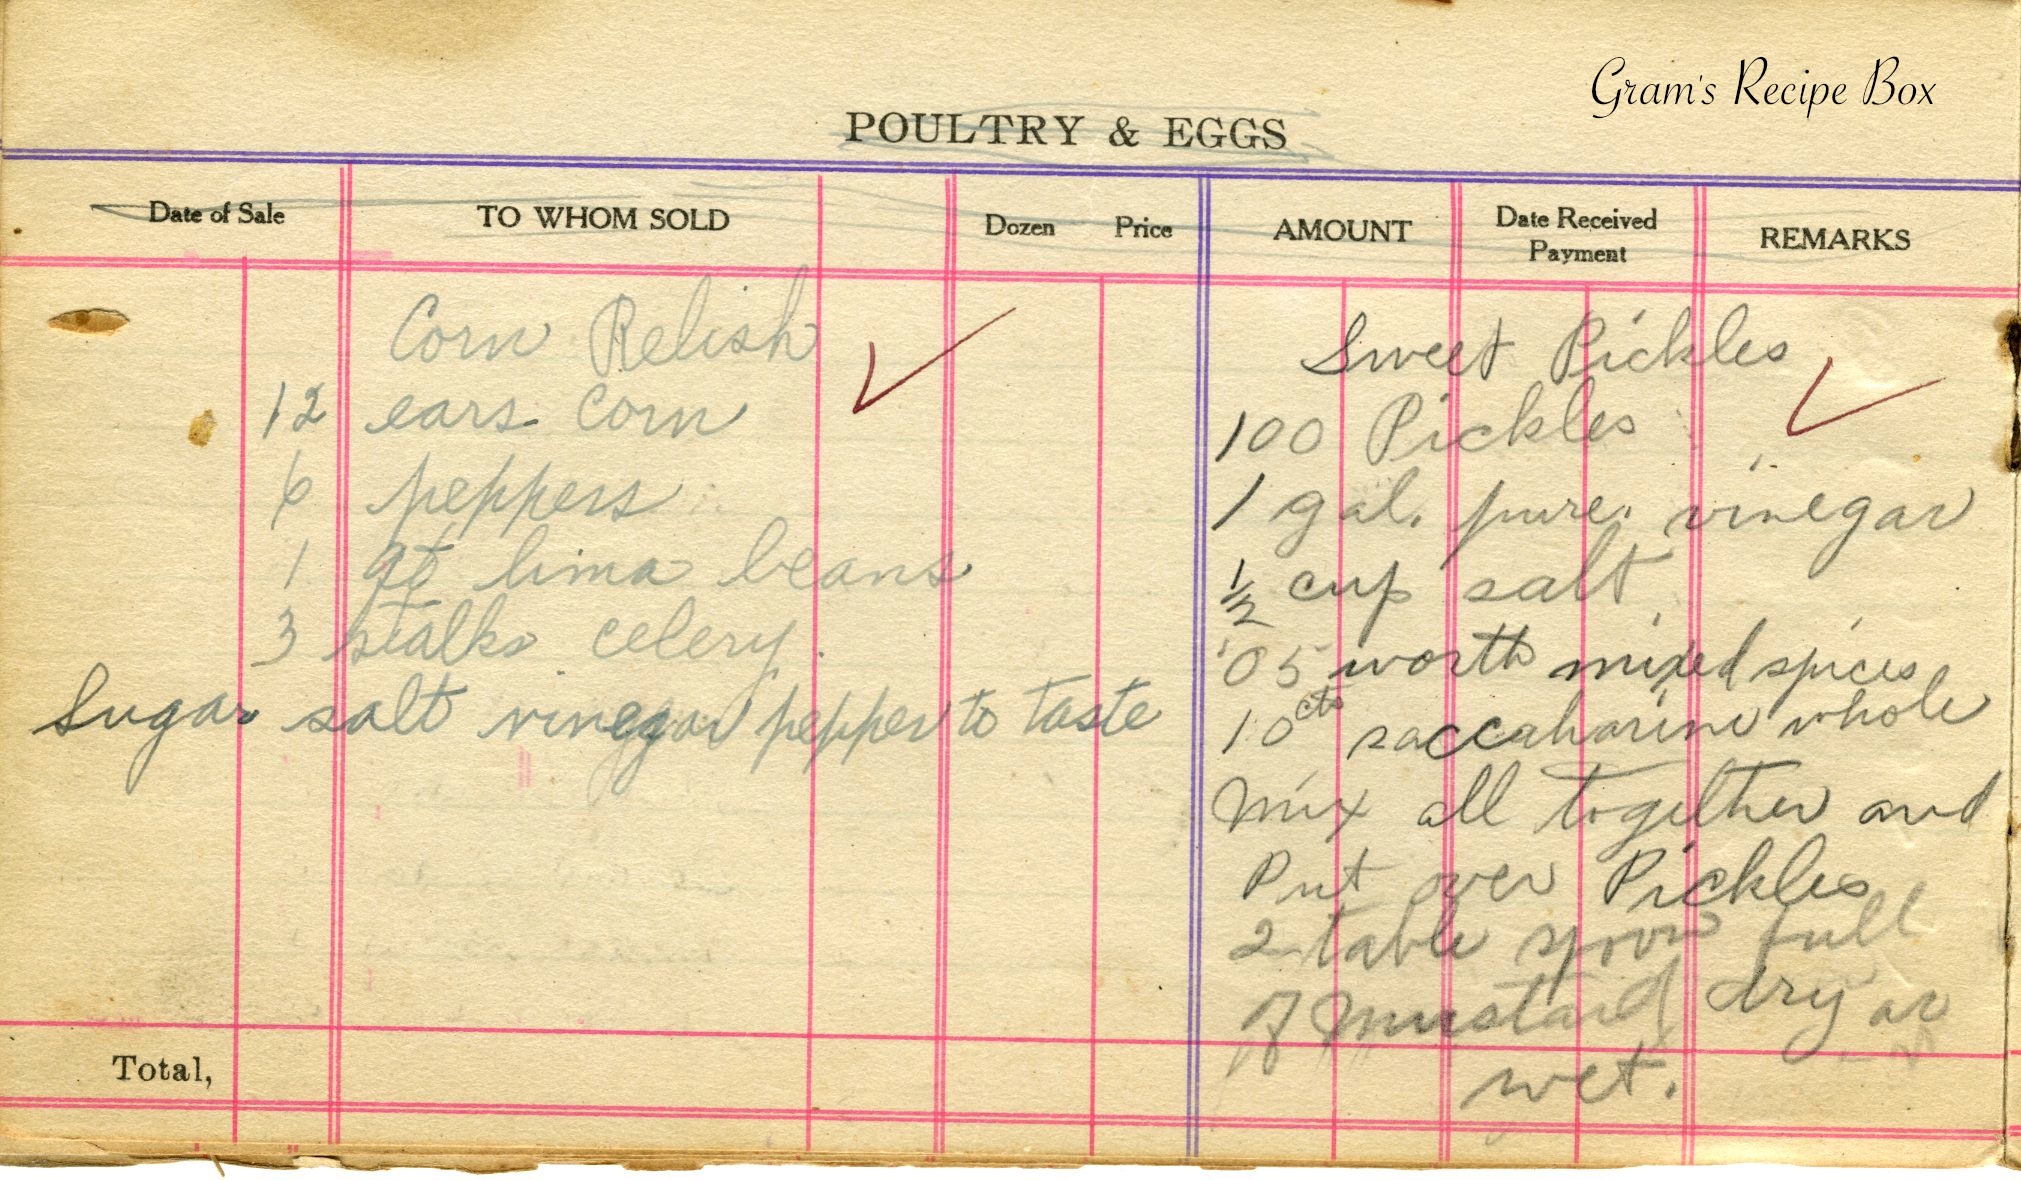 Gram's Recipe Box
POULTRY & EGGS
Date of Sale TO WHOM SOLD Dozen Price AMOUNT Date Received Payment REMARKS
Corn Relish
12 ears corn
6 peppers
1 qt lima beans
3 stalks celery.
Sugar salt vinegar pepper to taste
Sweet Pickles
100 Pickles
1 gal. pure. vinegar
1/2 cup salt
'05 worth mixed spices
10 cts saccaharine whole
Mix all together and
Put over Pickles
2 table spoon full
of Mustard dry or
wet.
Total,